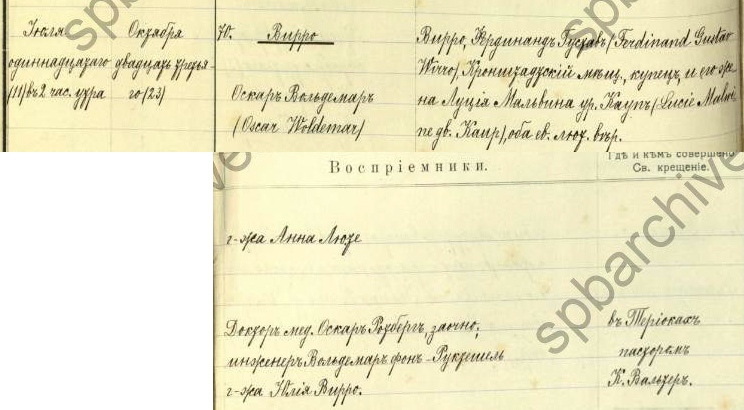 Іюля
одиннадцатаго
(11) въ 2 час. утра
Октября
двадцать третья-
го (23)
70. Вирро
Оскаръ Вольдемаръ
(Oscar Woldemar)
Вирро, Фердинандъ Густавъ (Ferdinand Gustav
Wirro) Кронштадтскій мѣщ., купецъ, и его же-
на Луція Мальвина ур. Каупъ (Lucie Malwi-
ne geb. Kaup), оба ев. лют. вѣр.
Воспріемники.
Гдѣ и кѣмъ совершено
Св. крещеніе.
г-жа Анна Люте
Докторъ мед. Оскаръ Ротбергъ, заочно;
инженеръ Вольдемаръ фонъ-Руктешель
г-жа Юлія Вирро.
въ Теріокахъ
пасторомъ
К. Вальтеръ.
spbarchive
spbarchive